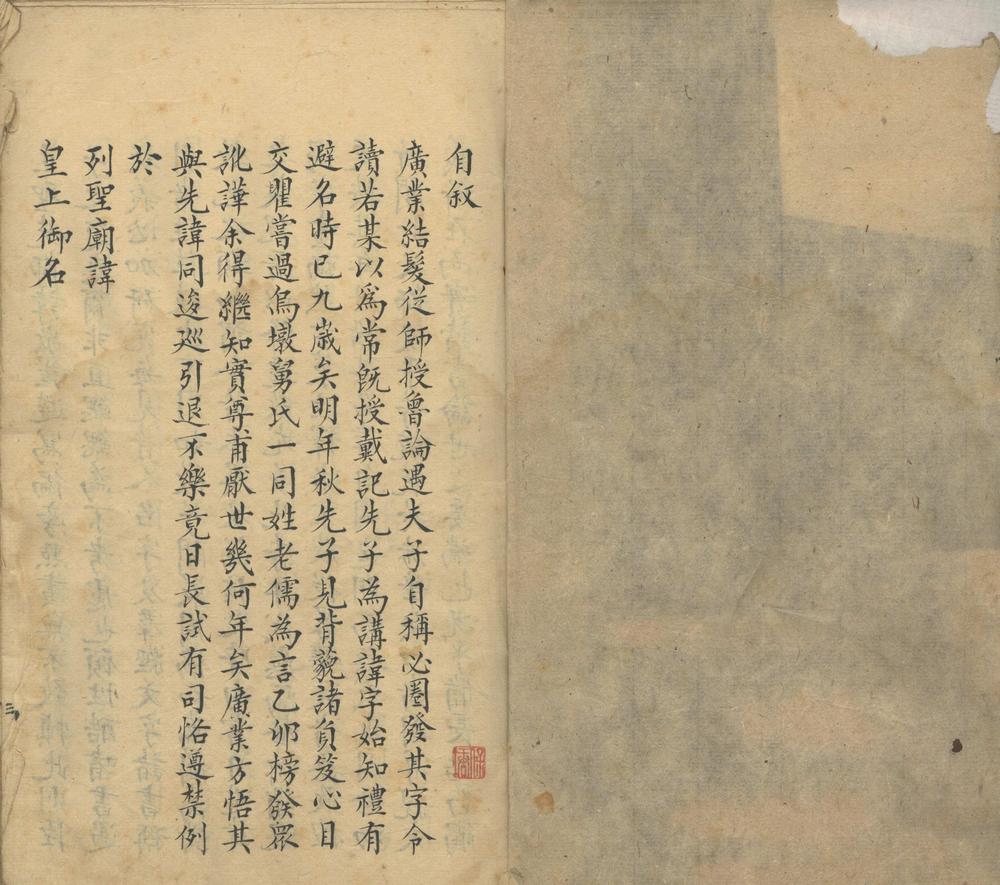 自叙
廣業結髮從師授魯論遇夫子自稱必圈發其字令
讀若某以爲常旣授戴記先子為講諱字始知禮有
避名時已九歲矣明年秋先子見背藐諸負笈心目
交瞿嘗過烏墩舅氏一同姓老儒為言乙卯榜發眾
訛譁余得繼知實尊甫厭世幾何年矣廣業方悟其
與先諱同逡廵引退不樂竟日長試有司恪遵禁例
於
列聖廟諱
皇上御名